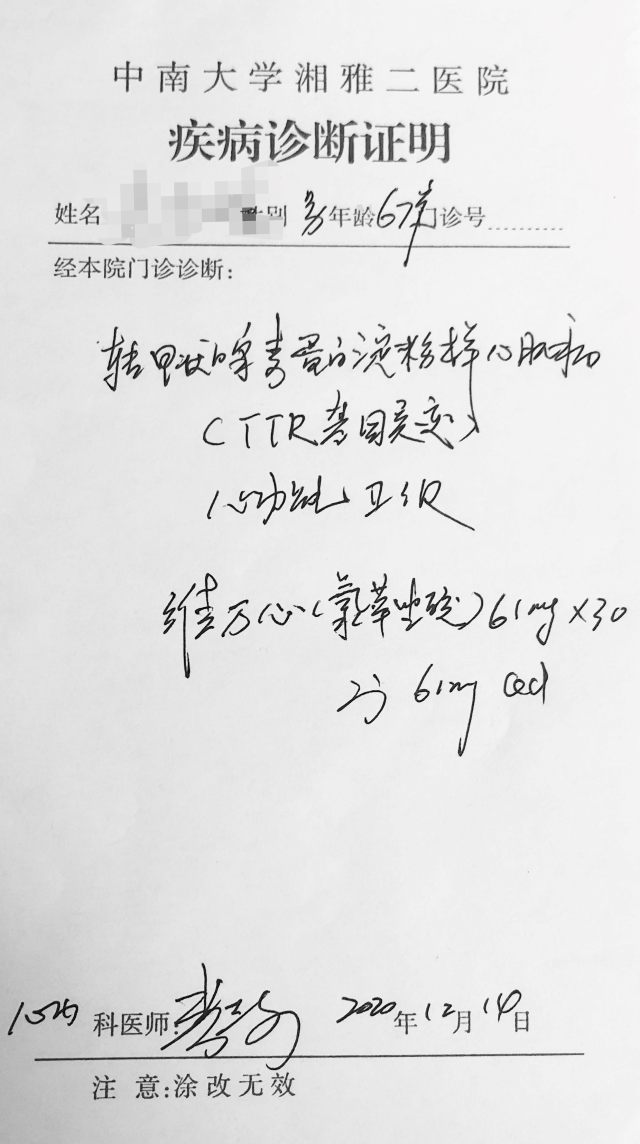 中南大学湘雅二医院
疾病诊断证明
姓名 性别 男 年龄 67岁 门诊号
经本院门诊诊断:
转甲状腺素蛋白淀粉样心肌病
(TTR基因突变)
心功能 Ⅱ级
维万心(氯苯唑酸)61mg×30
61mg Qd
心内 科医师: 2020年12月14日
注 意:涂改无效